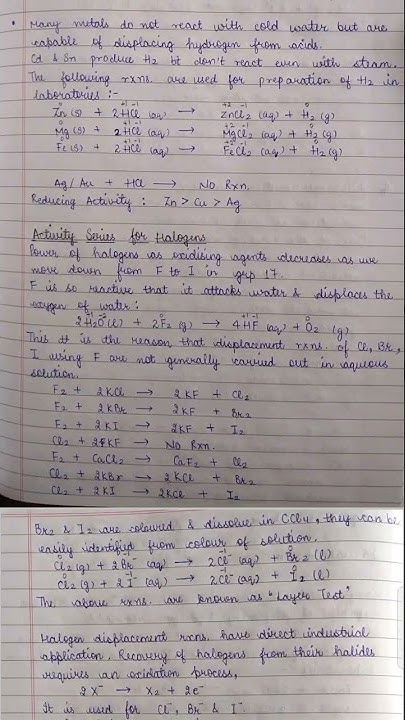 • Many metals do not react with cold water but are
capable of displacing hydrogen from acids.
Cd & Sn produce H2 bt don't react even with steam.
The following rxns. are used for preparation of H2 in
laboratories :-
0 +1 -1 +2 -1 0
Zn (s) + 2HCl (aq) → ZnCl2 (aq) + H2 (g)
0 +1 -1 +2 -1 0
Mg (s) + 2HCl (aq) → MgCl2 (aq) + H2 (g)
0 +1 -1 +2 -1 0
Fe (s) + 2HCl (aq) → FeCl2 (aq) + H2 (g)
Ag/Au + HCl → No Rxn.
Reducing Activity : Zn > Cu > Ag
Activity Series for Halogens
Power of halogens as oxidising agents decreases as we
move down from F to I in grp 17.
F is so reactive that it attacks water & displaces the
oxygen of water :
+1 -2 0 +1 -1 0
2H2O (l) + 2F2 (g) → 4HF (aq) + O2 (g)
This It is the reason that displacement rxns. of Cl, Br,
I using F are not generally carried out in aqueous
solution.
F2 + 2KCl → 2KF + Cl2
F2 + 2KBr → 2KF + Br2
F2 + 2KI → 2KF + I2
Cl2 + 2KF → No Rxn.
F2 + CaCl2 → CaF2 + Cl2
Cl2 + 2KBr → 2KCl + Br2
Cl2 + 2KI → 2KCl + I2
Br2 & I2 are coloured & dissolve in CCl4, they can be
easily identified from colour of solution.
0 -1 -1 0
Cl2 (g) + 2Br⁻ (aq) → 2Cl⁻ (aq) + Br2 (l)
0 -1 -1 0
Cl2 (g) + 2I⁻ (aq) → 2Cl⁻ (aq) + I2 (l)
The above rxns. are known as "Layer Test"
Halogen displacement rxns. have direct industrial
application. Recovery of halogens from their halides
requires an oxidation process,
2X⁻ → X2 + 2e⁻
It is used for Cl⁻, Br⁻ & I⁻